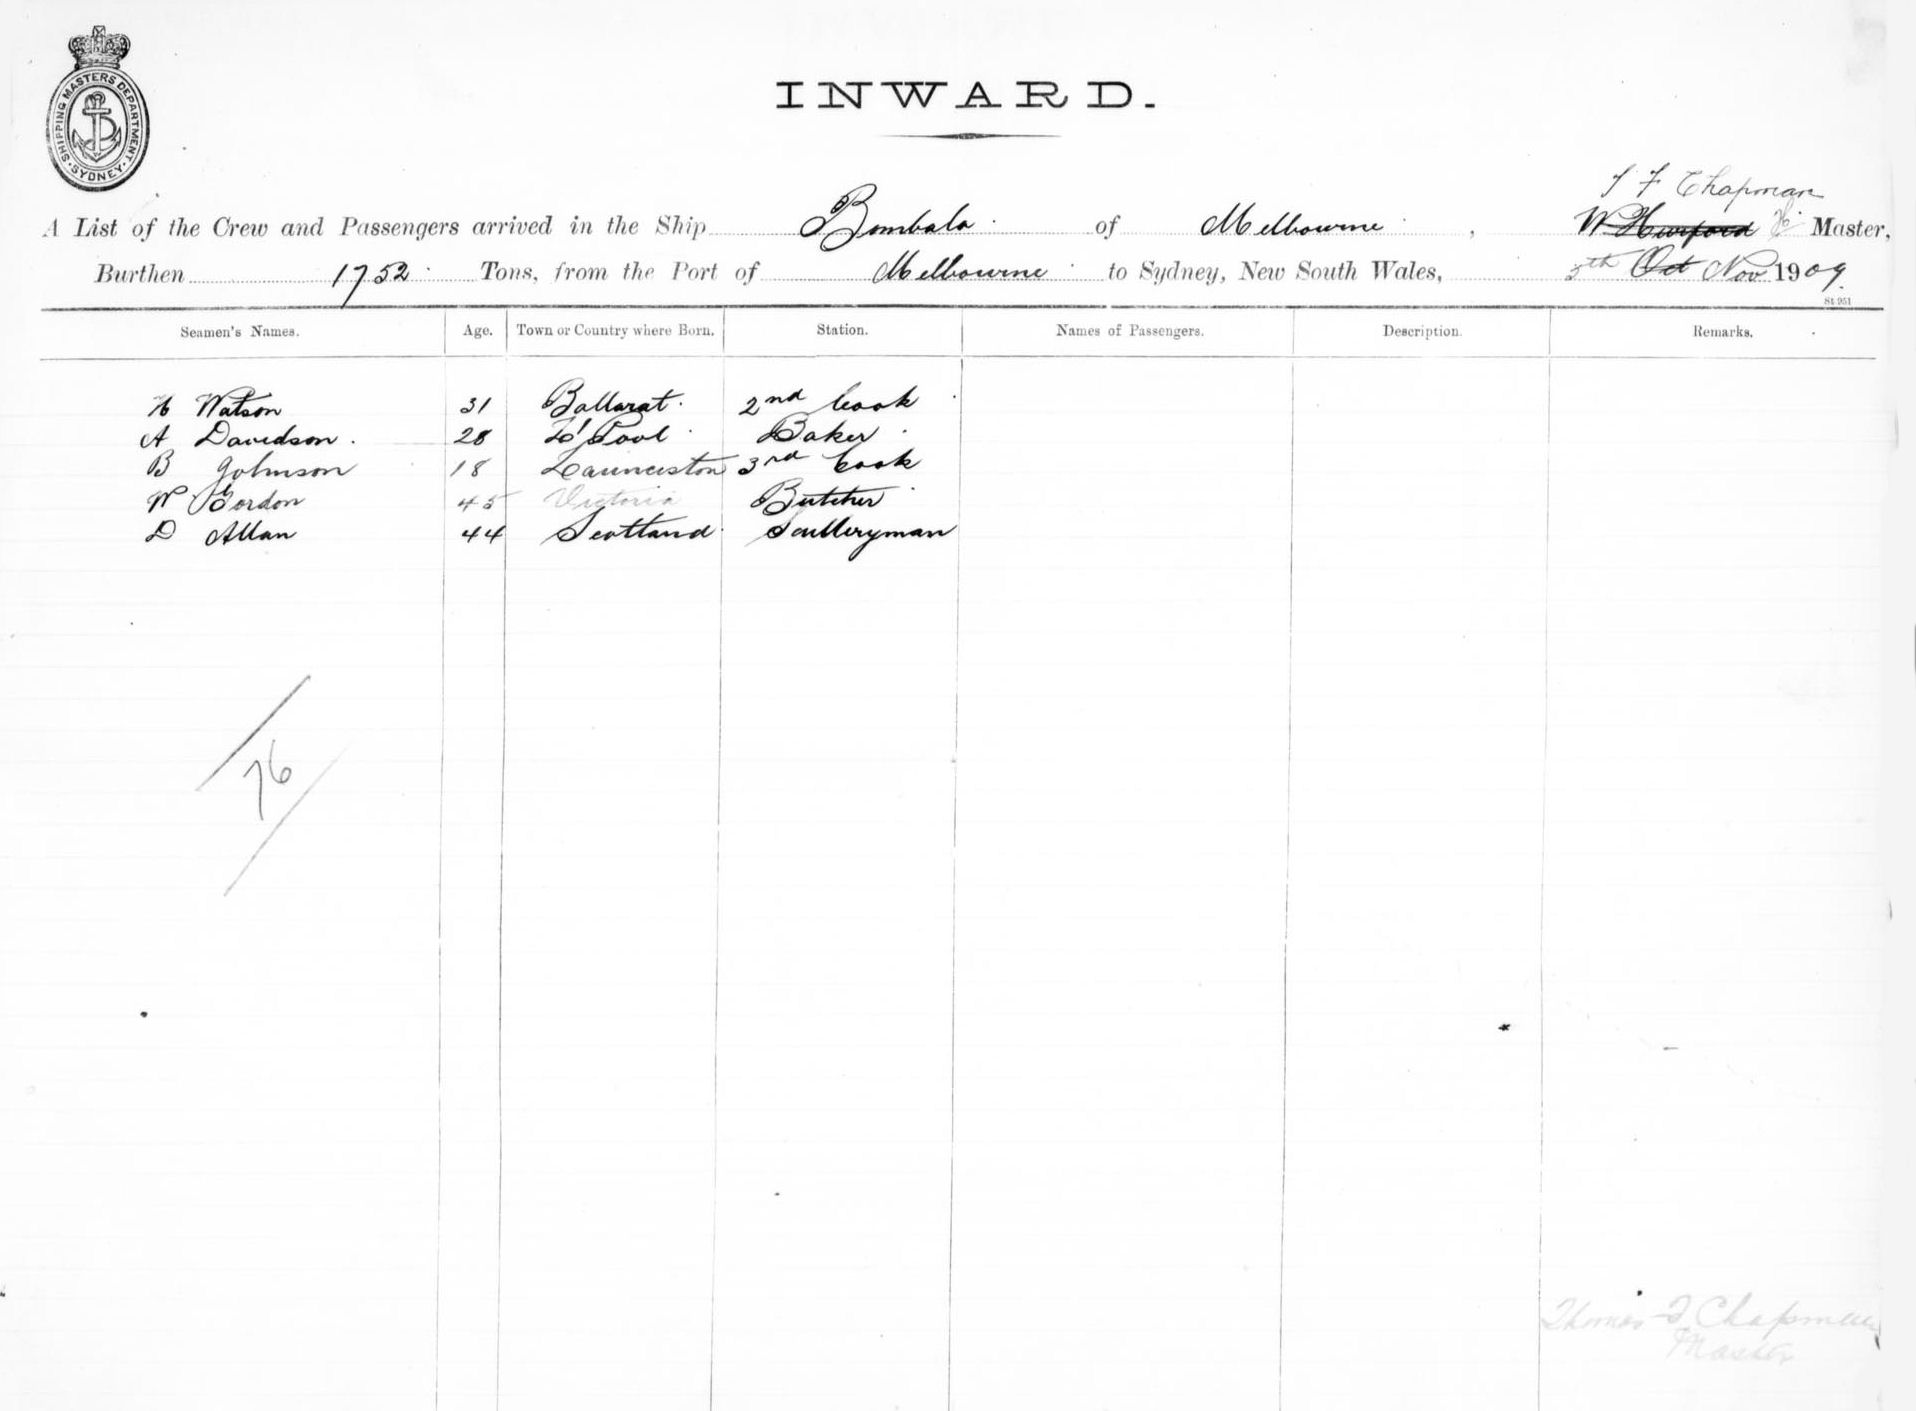 SHIPPING MASTERS DEPARTMENT · SYDNEY ·
INWARD.
T F Chapman
A List of the Crew and Passengers arrived in the Ship Bombala of Melbourne, W Hurford Master,
Burthen 1752 Tons, from the Port of Melbourne to Sydney, New South Wales, 5th Oct Nov 1909.
St 951
Seamen's Names. Age. Town or Country where Born. Station. Names of Passengers. Description. Remarks.
H Watson 31 Ballarat 2nd Cook
A Davidson 28 L'Pool Baker
B Johnson 18 Launceston 3rd Cook
W Gordon 45 Victoria Butcher
D Allan 44 Scotland Sculleryman
76
Thomas F Chapman
Master